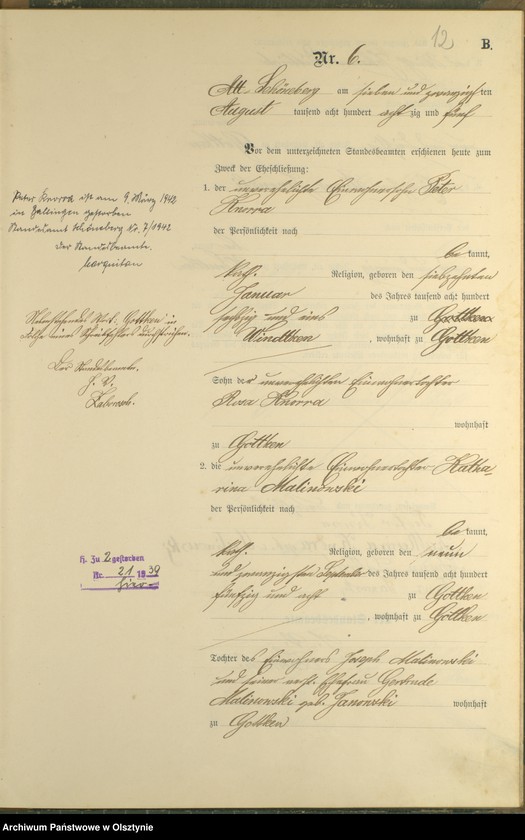 12
B.
Nr. 6.
Alt Schöneberg am sieben und zwanzigsten
August tausend acht hundert achtzig und fünf
Vor dem unterzeichneten Standesbeamten erschienen heute zum
Zweck der Eheschließung:
1. der unverehelichte Einwohnersohn Peter
Knorra
der Persönlichkeit nach
bekannt,
kath. Religion, geboren den siebzehnten
Januar des Jahres tausend acht hundert
sechszig und eins zu Gottken
Windtken, wohnhaft zu Gottken
Sohn der unverehelichten Einwohnertochter
Rosa Knorra
wohnhaft
zu Gottken
2. die unverehelichte Einwohnertochter Katha-
rina Malinowski
der Persönlichkeit nach
bekannt,
kath. Religion, geboren den neun
und zwanzigsten September des Jahres tausend acht hundert
fünfzig und acht zu Gottken
, wohnhaft zu Gottken
Tochter des Einwohners Joseph Malinowski
und seiner Ehefrau Gertrude
Malinowski geb. Janowski wohnhaft
zu Gottken
Peter Knorra ist am 9. März 1942
in gestorben
Standesamt Schöneberg Nr. 7/1942
Der Standesbeamte.
Nebenstehendes Wort: Gottken ist
Der Standesbeamte.
J. V.
H. Zu 2 gestorben
Nr. 21 1939
hier
Archiwum Państwowe w Olsztynie